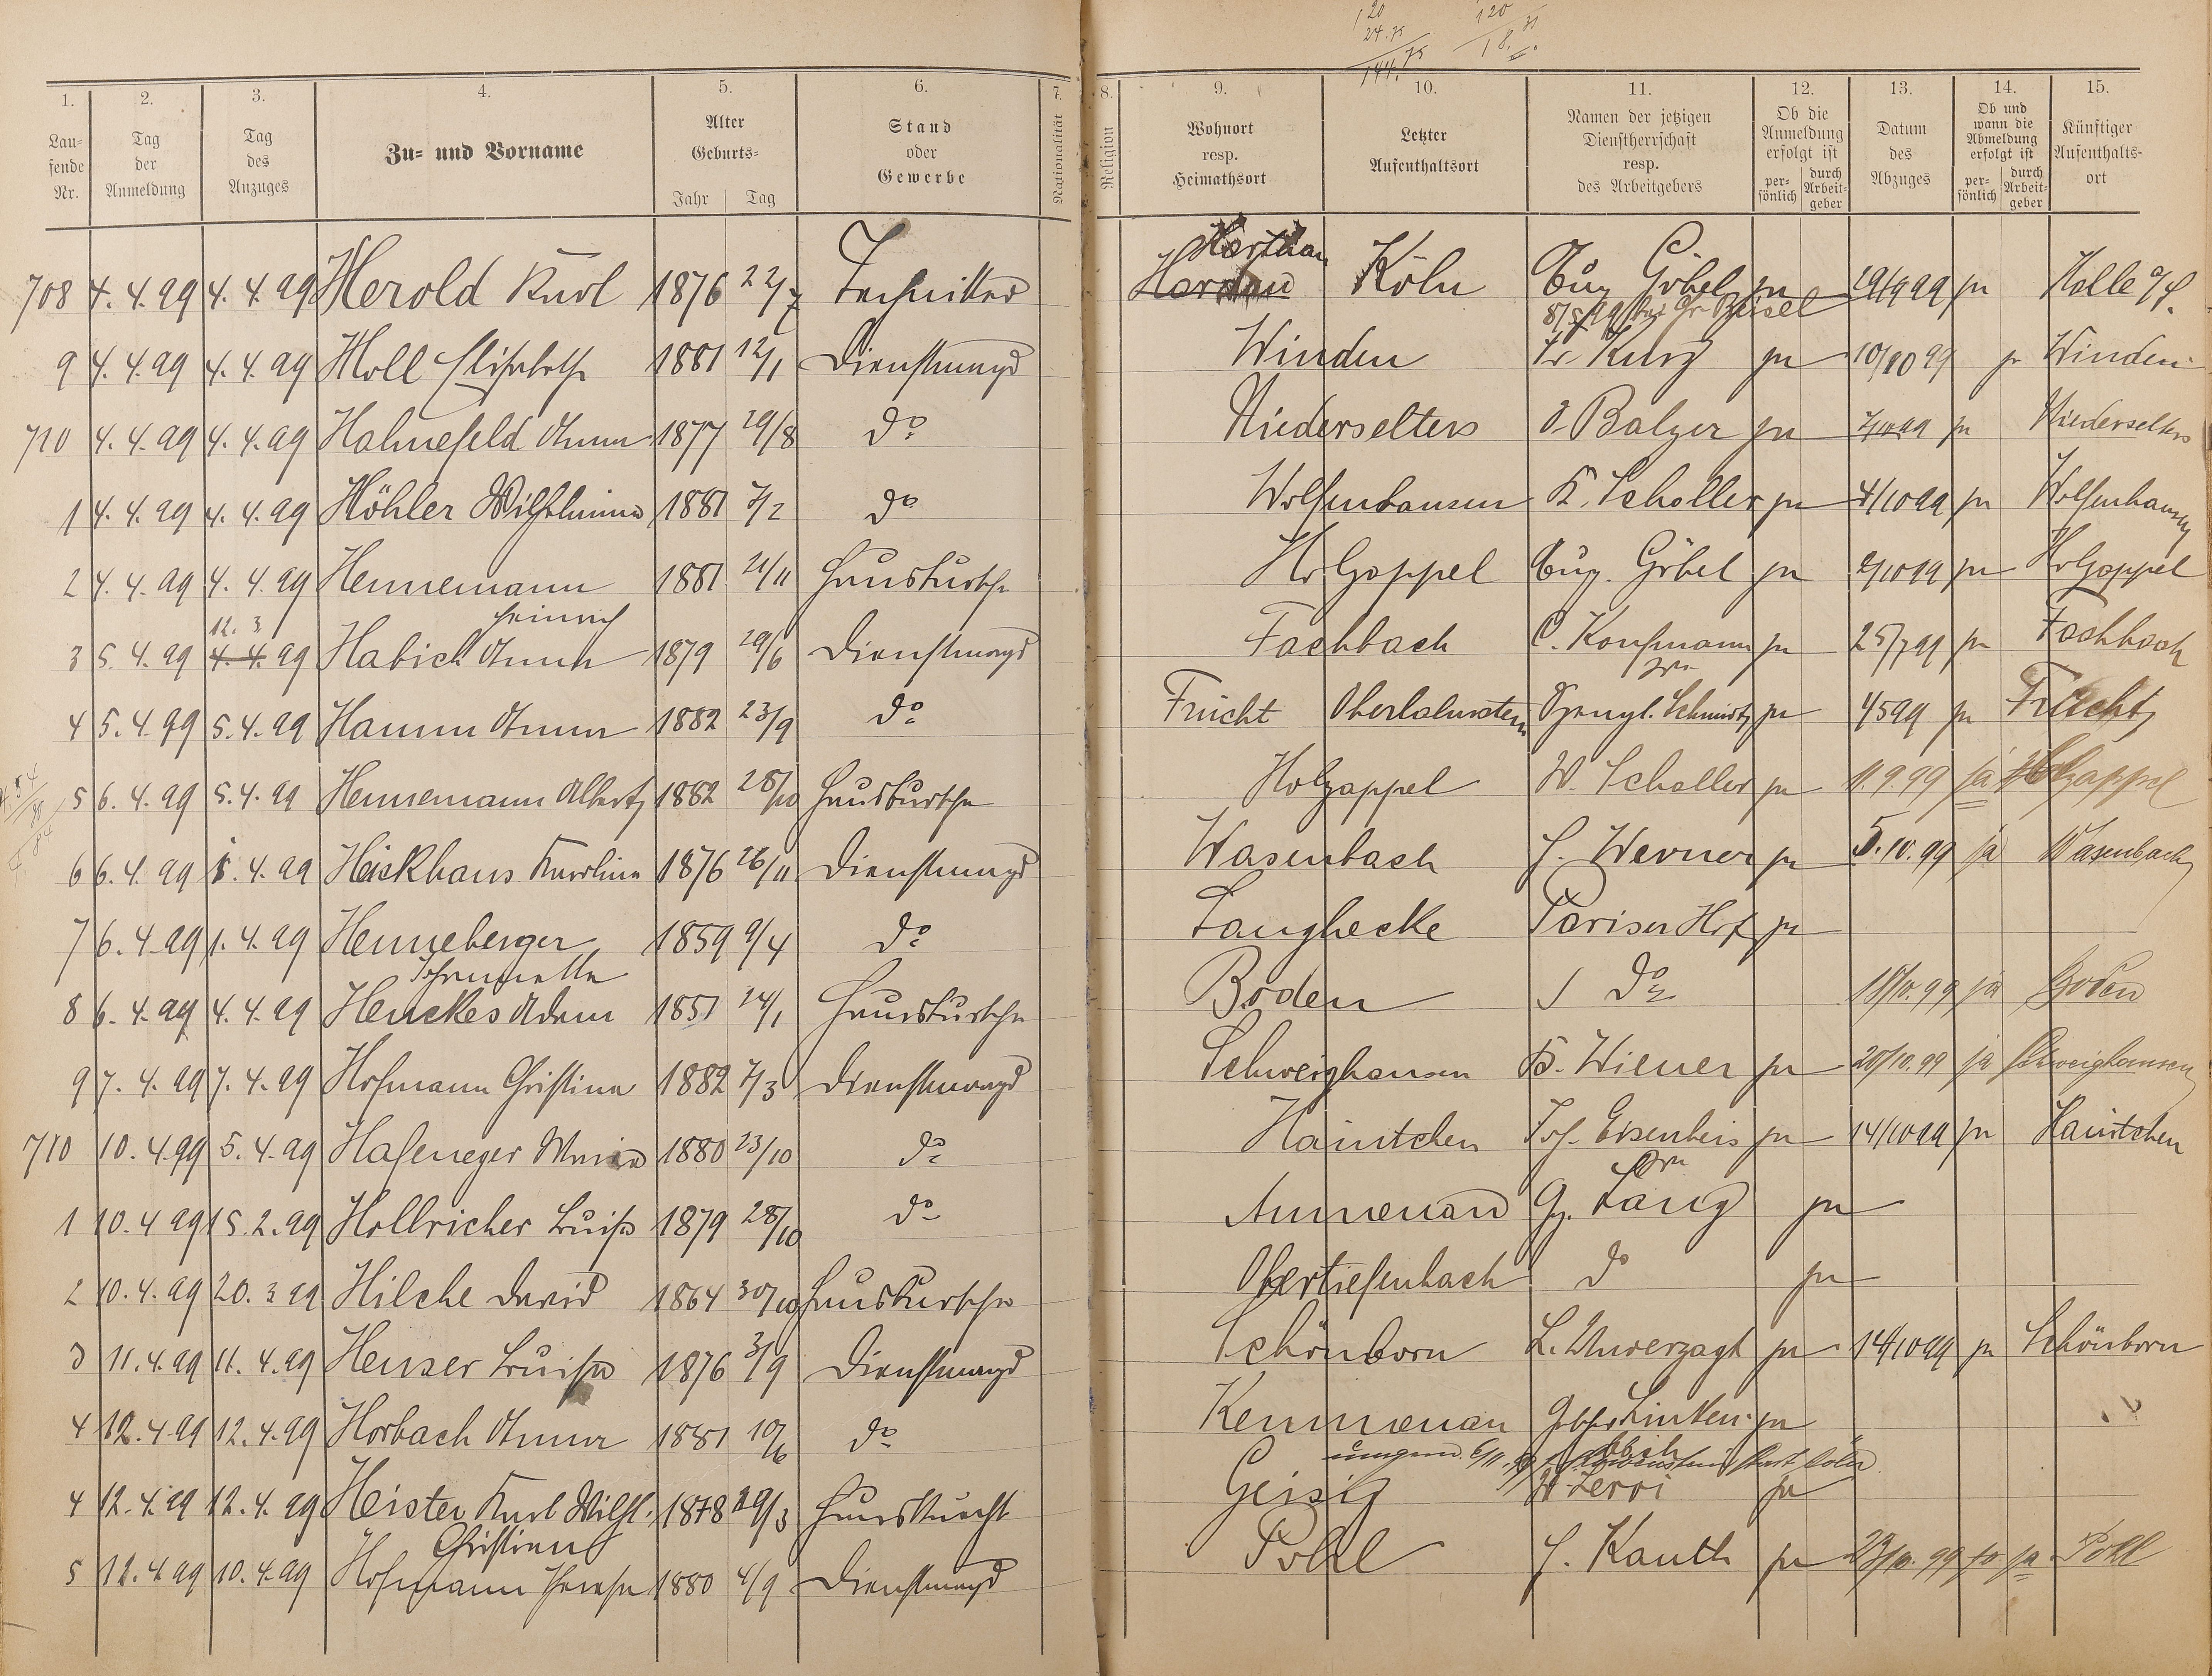 120
24.75
144.75
120
1.
2.
3.
4.
5.
6.
7.
8.
9.
10.
11.
12.
13.
14.
15.
Lau-
fende
Nr.
Tag
der
Anmeldung
Tag
des
Anzuges
Zu- und Vorname
Alter
Geburts-
Jahr
Tag
Stand
oder
Gewerbe
Nationalität
Religion
Wohnort
resp.
Heimathsort
Letzter
Aufenthaltsort
Namen der jetzigen
Dienstherrschaft
resp.
des Arbeitgebers
Ob die
Anmeldung
erfolgt ist
per-
sönlich
durch
Arbeit-
geber
Datum
des
Abzuges
Ob und
wann die
Abmeldung
erfolgt ist
per-
sönlich
durch
Arbeit-
geber
Künftiger
Aufenthalts-
ort
708 4.4.99 4.4.99 Herold Karl 1876 22/7 Techniker Köln Aug Göbel ja 19/9 99 ja Halle a/S.
9 4.4.99 4.4.99 Holl Elisabeth 1881 12/1 Dienstmagd Winden Fr. Kurz ja 10/10 99 ja Winden
710 4.4.99 4.4.99 Hahnefeld Anna 1877 29/8 do Niederselters J. Balzer ja 7/10 99 ja Niederselters
1 4.4.99 4.4.99 Höhler Wilhelmine 1881 7/2 do Wolfenhausen K. Scholler ja 4/10 99 ja Wolfenhausen
2 4.4.99 4.4.99 Hennemann 1881 21/11 Hausbursche Holzappel Aug. Göbel ja 2/10 99 ja Holzappel
Heinrich
12.3
3 5.4.99 4.4.99 Habich Anna 1879 29/6 Dienstmagd Fachbach C. Kaufmann ja 25/7 99 ja Fachbach
4 5.4.99 5.4.99 Hamm Anna 1882 23/9 do Frücht Oberlahnstein Schmidt ja 4 5 99 ja Frücht
5 6.4.99 5.4.99 Hennemann Albert 1882 28/10 Hausbursche Holzappel W. Scholler ja 11.9.99 ja Holzappel
6 6.4.99 1.4.99 Heickhaus Karoline 1876 26/11 Dienstmagd Wasenbach J. Werner ja 5.10.99 ja Wasenbach
7 6.4.99 1.4.99 Henneberger 1859 9/4 do Langhecke Pariser Hof ja
8 6.4.99 4.4.99 Henckes Adam 1851 24/1 Hausbursche Boden do 18/10.99 ja Boden
9 7.4.99 7.4.99 Hofmann Christina 1882 7/3 Dienstmagd Schweighausen B. Wiener ja 20/10.99 ja Schweighausen
710 10.4.99 5.4.99 Hafeneger Maria 1880 23/10 do Haintchen Jos. Eisenbeis ja 14/10 99 ja Haintchen
1 10.4 99 15.2.99 Hollricher Luise 1879 28/10 do Aumenau Gg. Lang ja
2 10.4.99 20.3 99 Hilche David 1864 30/10 Hausbursche Obertiefenbach do ja
3 11.4.99 11.4.99 Heuser Luise 1876 3/9 Dienstmagd Schönborn L. Unverzagt ja 14/10 99 ja Schönborn
4 12.4.99 12.4.99 Horbach Anna 1881 10/6 do Kemmenau Gebr. Linken ja
4 12.4.99 12.4.99 Heister Karl Wilh. 1878 29/3 Hausknecht Geisig ja
Christiane
5 12.4.99 10.4.99 Hofmann 1880 4/9 Dienstmagd Pohl J. Kauth ja 23/10.99 ja Pohl